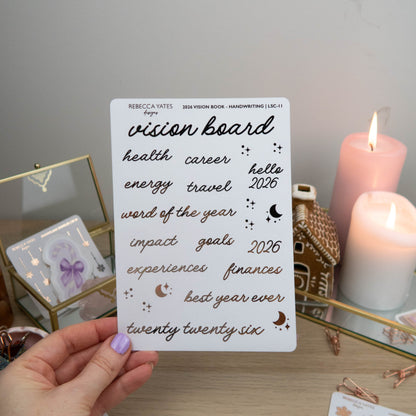 REBECCA YATES
designs
2026 VISION BOOK - HANDWRITING | LSC-11
vision board
health career
hello
2026
energy travel
word of the year
impact goals 2026
experiences finances
best year ever
twenty twenty six